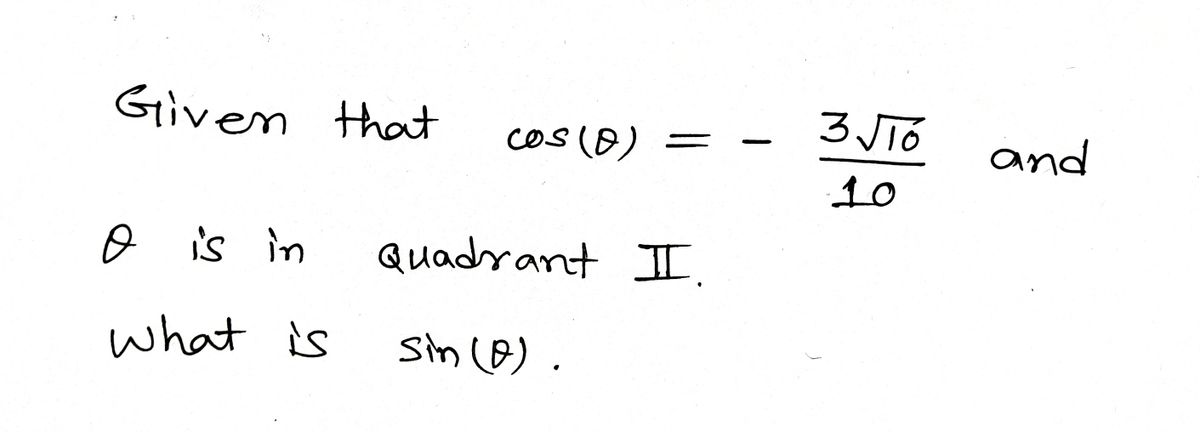 Given that cos(θ) = - 3√10/10 and
θ is in Quadrant II.
What is sin(θ).